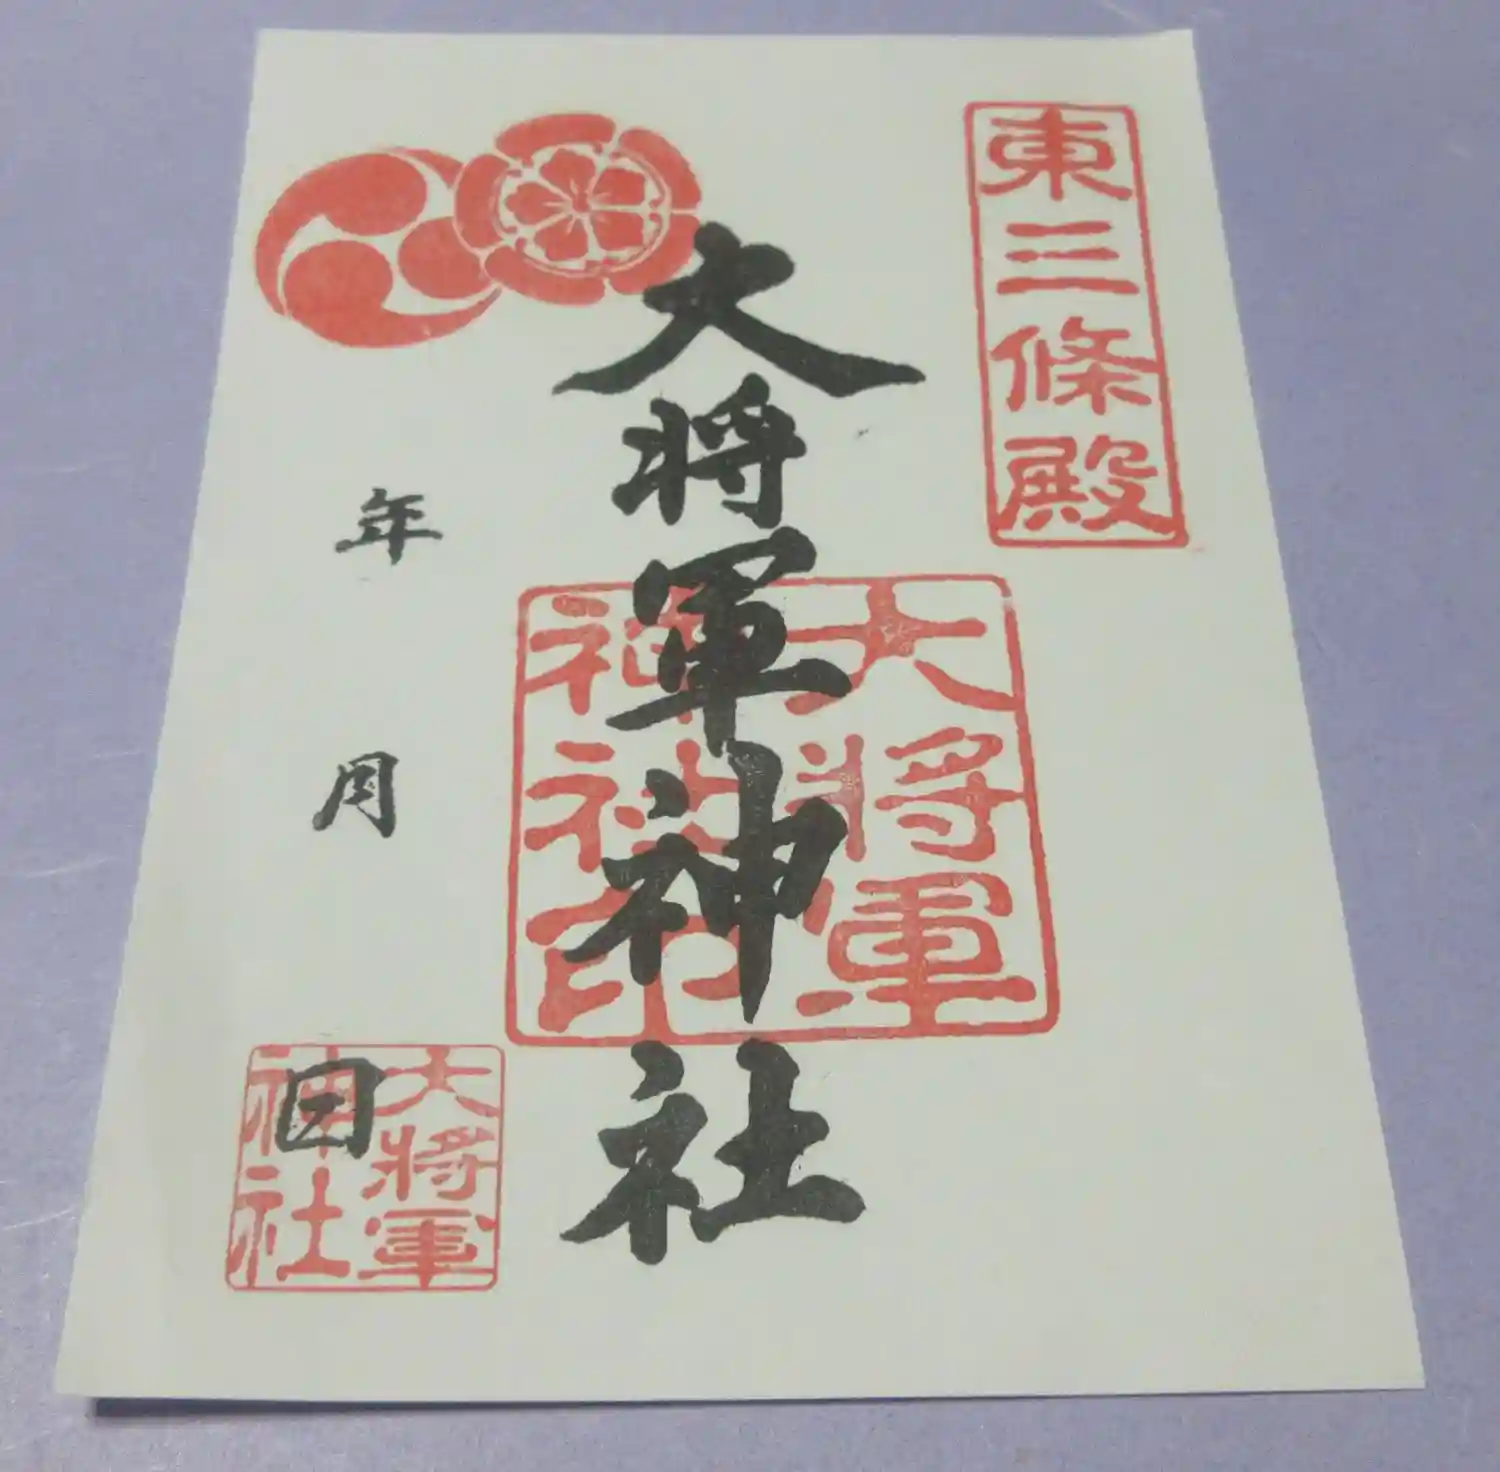 東三條殿
大将軍神社
大將軍
神社印
年
月
日
大將軍
神社